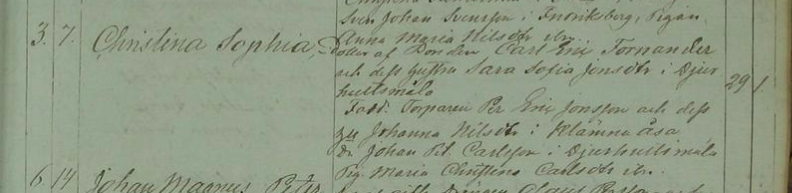 Sven Johan Svensson i Fredriksberg, Pigan
Anna Maria Nilsdtr ibm.
3. 7. Christina Sophia, Dotter af Bonden Carl Eric Tornander
och dess hustru Sara Sofia Jonsdtr i Djur
hultsmåla 29 1.
Fadd: Torparen Per Eric Jonsson och dess
hu Johanna Nilsdtr i Klämna Åsa
Dr. Johan Pet. Carlsson i Djurhultsmåla
Pig. Maria Christina Carlsdtr ibm.
6. 14 Johan Magnus Petr